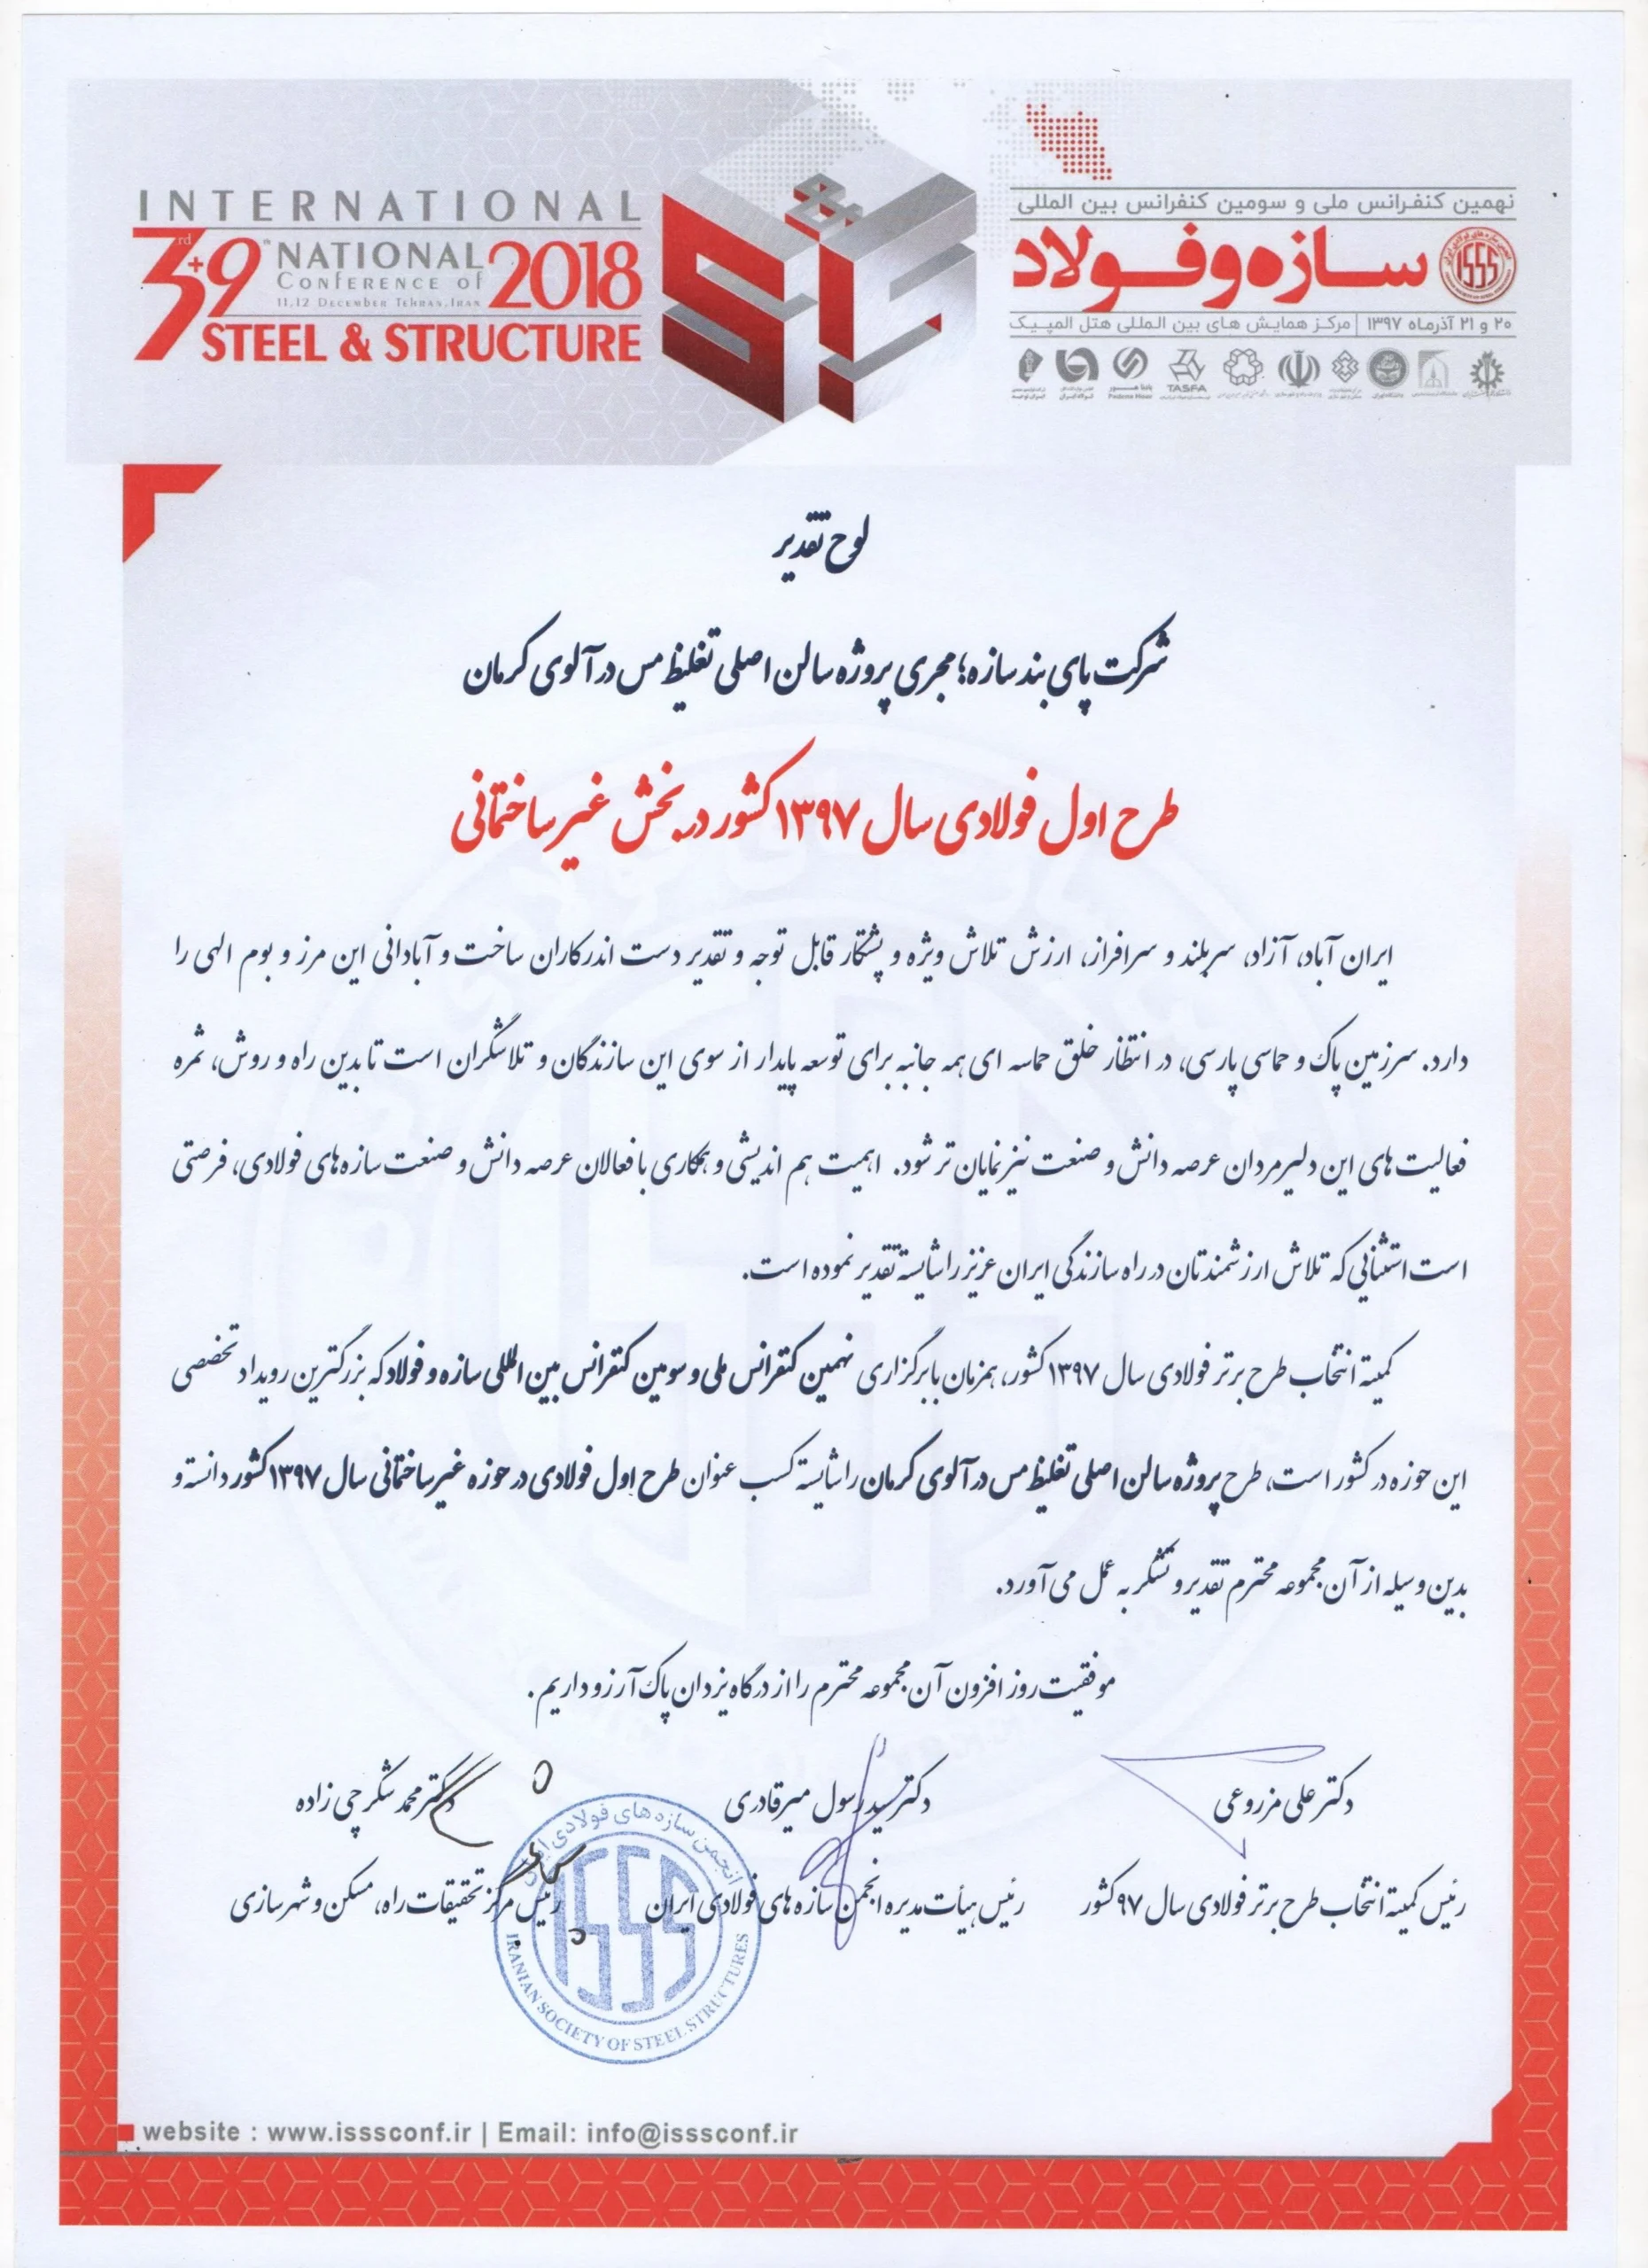 INTERNATIONAL
3rd+9th NATIONAL
Conference of
11,12 December Tehran, Iran
2018
STEEL & STRUCTURE
نهمین کنفرانس ملی و سومین کنفرانس بین المللی
سازه و فولاد
ISSS
۲۰ و ۲۱ آذرماه ۱۳۹۷ | مرکز همایش های بین المللی هتل المپیک
TASFA
لوح تقدیر
شرکت پای بند سازه؛ مجری پروژه سالن اصلی تغلیظ مس درآلوی کرمان
طرح اول فولادی سال ۱۳۹۷ کشور در بخش غیر ساختمانی
ایران آباد، آزاد، سربلند و سرافراز، ارزش تلاش ویژه و پشتکار قابل توجه و تقدیر دست اندرکاران ساخت و آبادانی این مرز و بوم الهی را
دارد. سرزمین پاک و حماسی پارسی، در انتظار خلق حماسه ای همه جانبه برای توسعه پایدار از سوی این سازندگان و تلاشگران است تا بدین راه و روش، ثمره
فعالیت های این دلیرمردان عرصه دانش و صنعت نیز نمایان تر شود. اهمیت هم اندیشی و همکاری با فعالان عرصه دانش و صنعت سازه های فولادی، فرصتی
است استثنایی که تلاش ارزشمندتان در راه سازندگی ایران عزیز را شایسته تقدیر نموده است.
کمیته انتخاب طرح برتر فولادی سال ۱۳۹۷ کشور، همزمان با برگزاری نهمین کنفرانس ملی و سومین کنفرانس بین المللی سازه و فولاد که بزرگترین رویداد تخصصی
این حوزه در کشور است، طرح پروژه سالن اصلی تغلیظ مس درآلوی کرمان را شایسته کسب عنوان طرح اول فولادی در حوزه غیر ساختمانی سال ۱۳۹۷ کشور دانسته و
بدین وسیله از آن مجموعه محترم تقدیر و تشکر به عمل می آورد.
موفقیت روز افزون آن مجموعه محترم را از درگاه یزدان پاک آرزو داریم.
دکتر علی مزروعی
رئیس کمیته انتخاب طرح برتر فولادی سال ۹۷ کشور
دکتر سید رسول میرقادری
رئیس هیأت مدیره انجمن سازه های فولادی ایران
دکتر محمد شکرچی زاده
رئیس مرکز تحقیقات راه، مسکن و شهرسازی
انجمن سازه های فولادی ایران
ISSS
IRANIAN SOCIETY OF STEEL STRUCTURES
website : www.isssconf.ir | Email: info@isssconf.ir